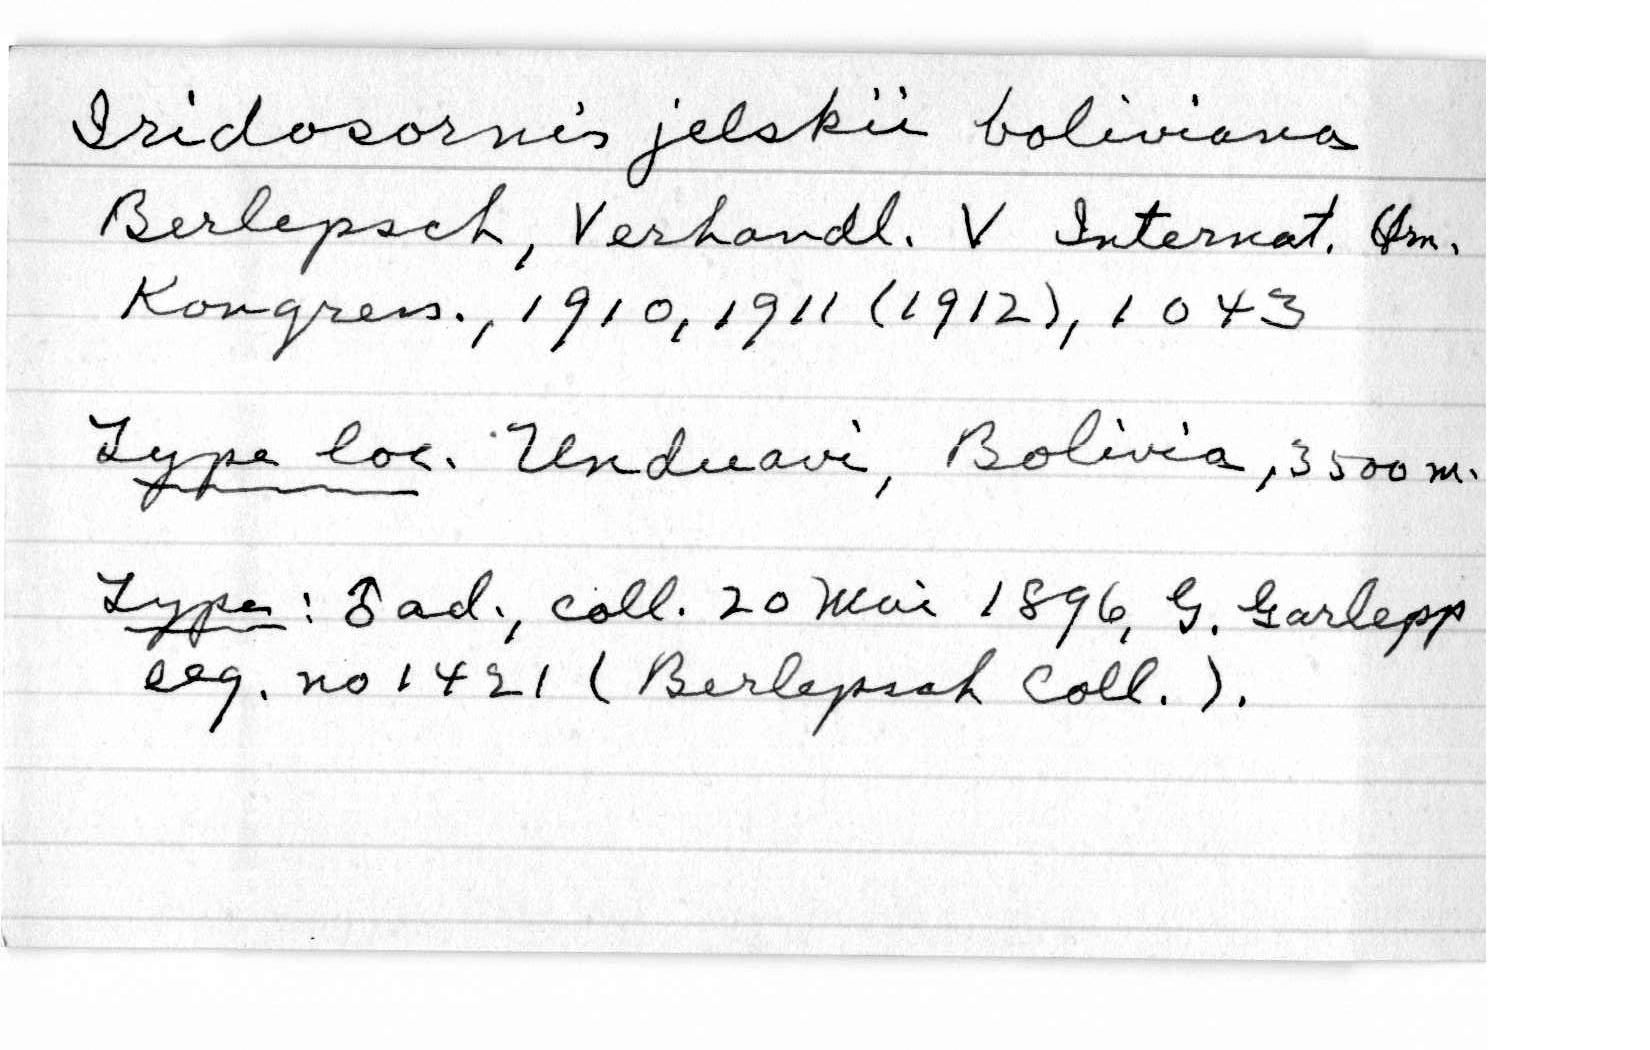 Iridosornis jelskii boliviana
Berlepsch, Verhandl. V Internat. Orn.
Kongress., 1910, 1911 (1912), 1043
Type loc. Unduavi, Bolivia, 3500 m.
Type: ♂ ad., coll. 20 Mai 1896, G. Garlepp
leg. no 1421 (Berlepsch Coll.).